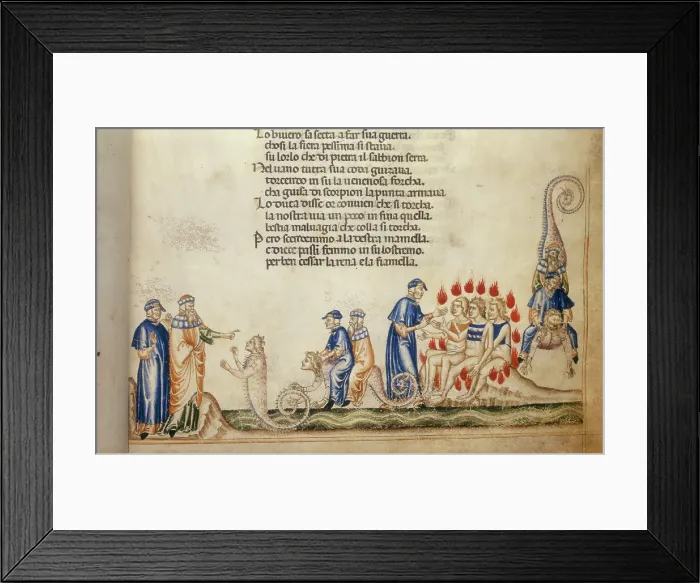 Lo bivero sa setta a far sua guerra.
chosi la fiera pessima si stava.
su lorlo che di pietra il sabbion serra.
Nel vano tutta sua coda guizava.
torcendo in su la venenosa forcha.
cha guisa di scorpion la punta armava.
Lo duca disse or convien che si torcha.
la nostra via un poco in fina quella.
bestia malvagia che colla si torcha.
Pero scendemmo a la destra mamella.
e diece passi femmo in su lo stremo.
per ben cessar la rena e la fiamella.